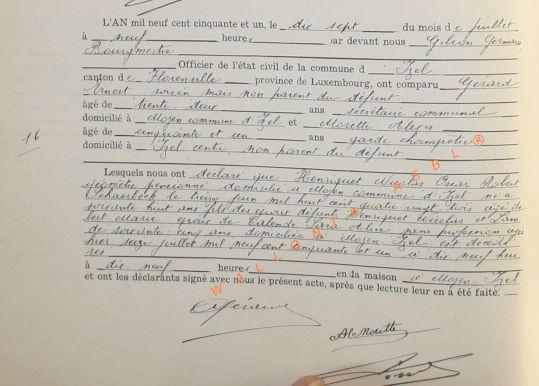 L'AN mil neuf cent cinquante et un, le dix sept du mois de juillet
à neuf heures, par devant nous Gilson Germain
Bourgmestre
Officier de l'état civil de la commune d'Izel
canton de Florenville province de Luxembourg, ont comparu Gérard
Ernest voisin mais non parent du défunt
âgé de trente deux ans secrétaire communal
domicilié à Moyen commune d'Izel et Morette Alexis
âgé de cinquante et un ans garde champêtre
domicilié à Izel centre, non parent du défunt
16
Lesquels nous ont déclaré que Henriquet Nicolas Oscar Robert
géomètre pensionné domicilié à Moyen commune d'Izel né à
Schaerbeek le treize juin mil huit cent quatre vingt trois âgé de
soixante huit ans fils des époux défunts Henriquet Nicolas et Lam
bert Marie, époux de Lalonde Alice sans profession âgée
de soixante cinq ans domiciliée à Moyen-Izel est décédé
hier seize juillet mil neuf cent cinquante et un à dix neuf heu
res
à dix neuf heures en da maison à Moyen-Izel
et ont les déclarants signé avec nous le présent acte, après que lecture leur en a été faite.
WALLONIE ASBL ®
Al Morette